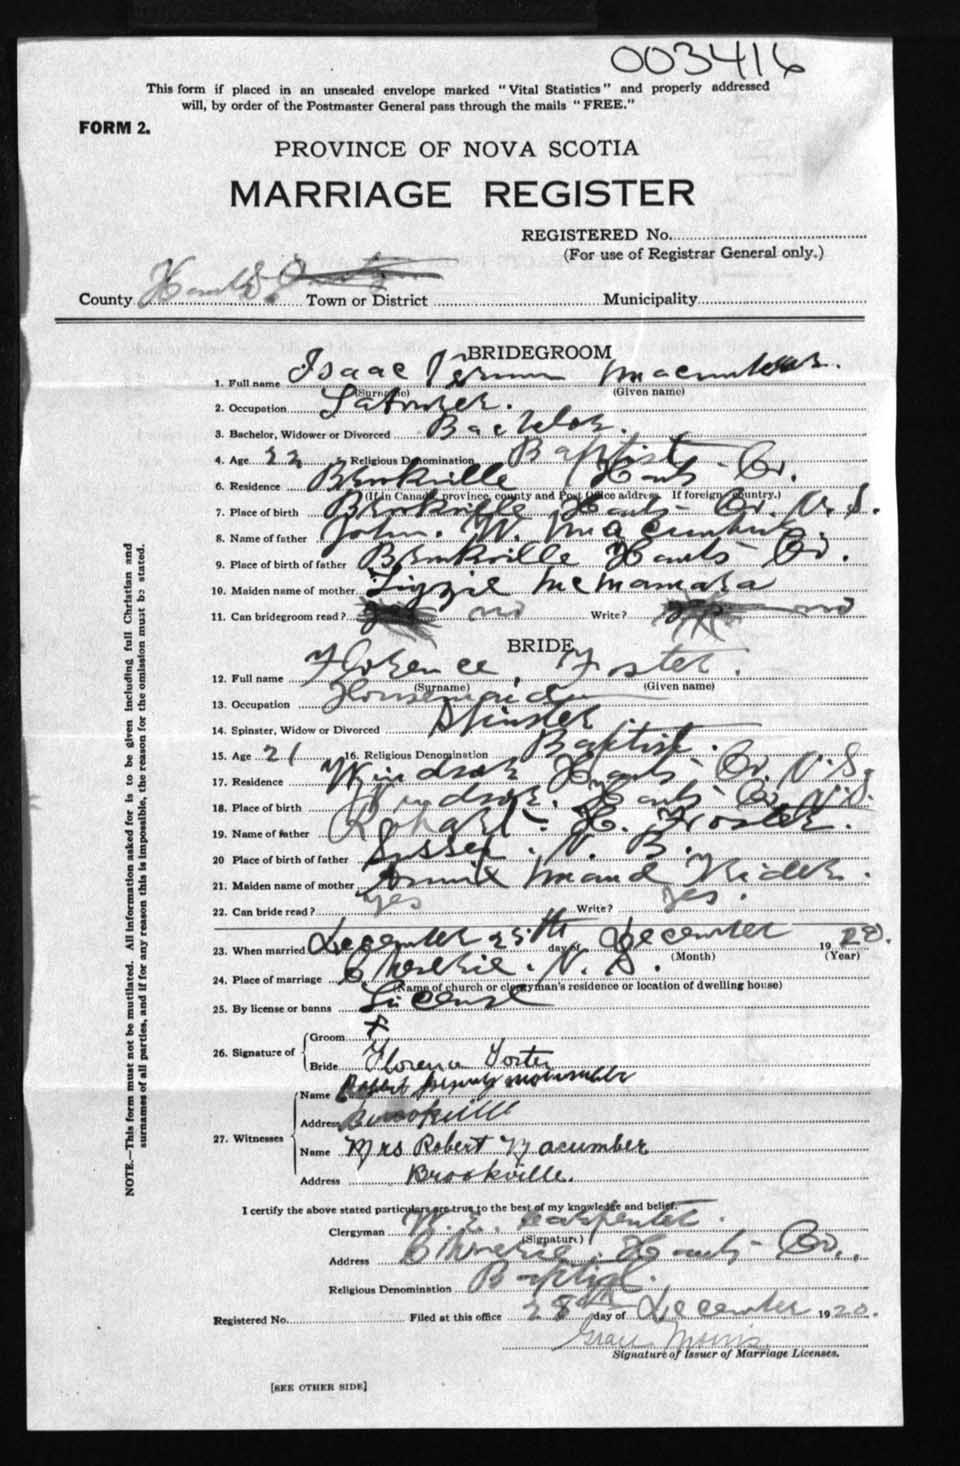 003416
This form if placed in an unsealed envelope marked "Vital Statistics" and properly addressed
will, by order of the Postmaster General pass through the mails "FREE."
FORM 2.
PROVINCE OF NOVA SCOTIA
MARRIAGE REGISTER
REGISTERED No.
(For use of Registrar General only.)
County Hants Town or District Municipality
BRIDEGROOM
1. Full name Isaac Vernon Macumber.
(Surname) (Given name)
2. Occupation Labourer.
3. Bachelor, Widower or Divorced Bachelor.
4. Age 22 5. Religious Denomination Baptist
6. Residence Brookville Hants Co.
(If in Canada, province, county and Post Office address. If foreign, country.)
7. Place of birth Brookville Hants Co. N. S.
8. Name of father John. W. Macumber
9. Place of birth of father Brookville Hants Co.
10. Maiden name of mother Lizzie McMamara
11. Can bridegroom read? no Write? no
BRIDE
12. Full name Florence Foster.
(Surname) (Given name)
13. Occupation Housemaid
14. Spinster, Widow or Divorced Spinster
15. Age 21 16. Religious Denomination Baptist.
17. Residence Windsor Hants Co. N. S.
18. Place of birth Windsor. Hants Co. N. S.
19. Name of father Robert. H. Foster.
20 Place of birth of father Sussex. N. B.
21. Maiden name of mother Annie Maud
22. Can bride read? yes Write? yes.
23. When married December 25th day of December 1920.
(Month) (Year)
24. Place of marriage Cheverie. N. S.
(Name of church or clergyman's residence or location of dwelling house)
25. By license or banns License
26. Signature of Groom X
Bride Florence Foster
27. Witnesses Name Robert Macumber
Address Brookville
Name Mrs Robert Macumber
Address Brookville.
I certify the above stated particulars are true to the best of my knowledge and belief.
Clergyman W. E. Carpenter.
(Signature)
Address Cheverie. Hants Co.
Religious Denomination Baptist.
Registered No. Filed at this office 28th day of December 1920.
Grace Morris
Signature of Issuer of Marriage Licenses.
[SEE OTHER SIDE]
NOTE.—This form must not be mutilated. All information asked for is to be given including full Christian and
surnames of all parties, and if for any reason this is impossible, the reason for the omission must be stated.